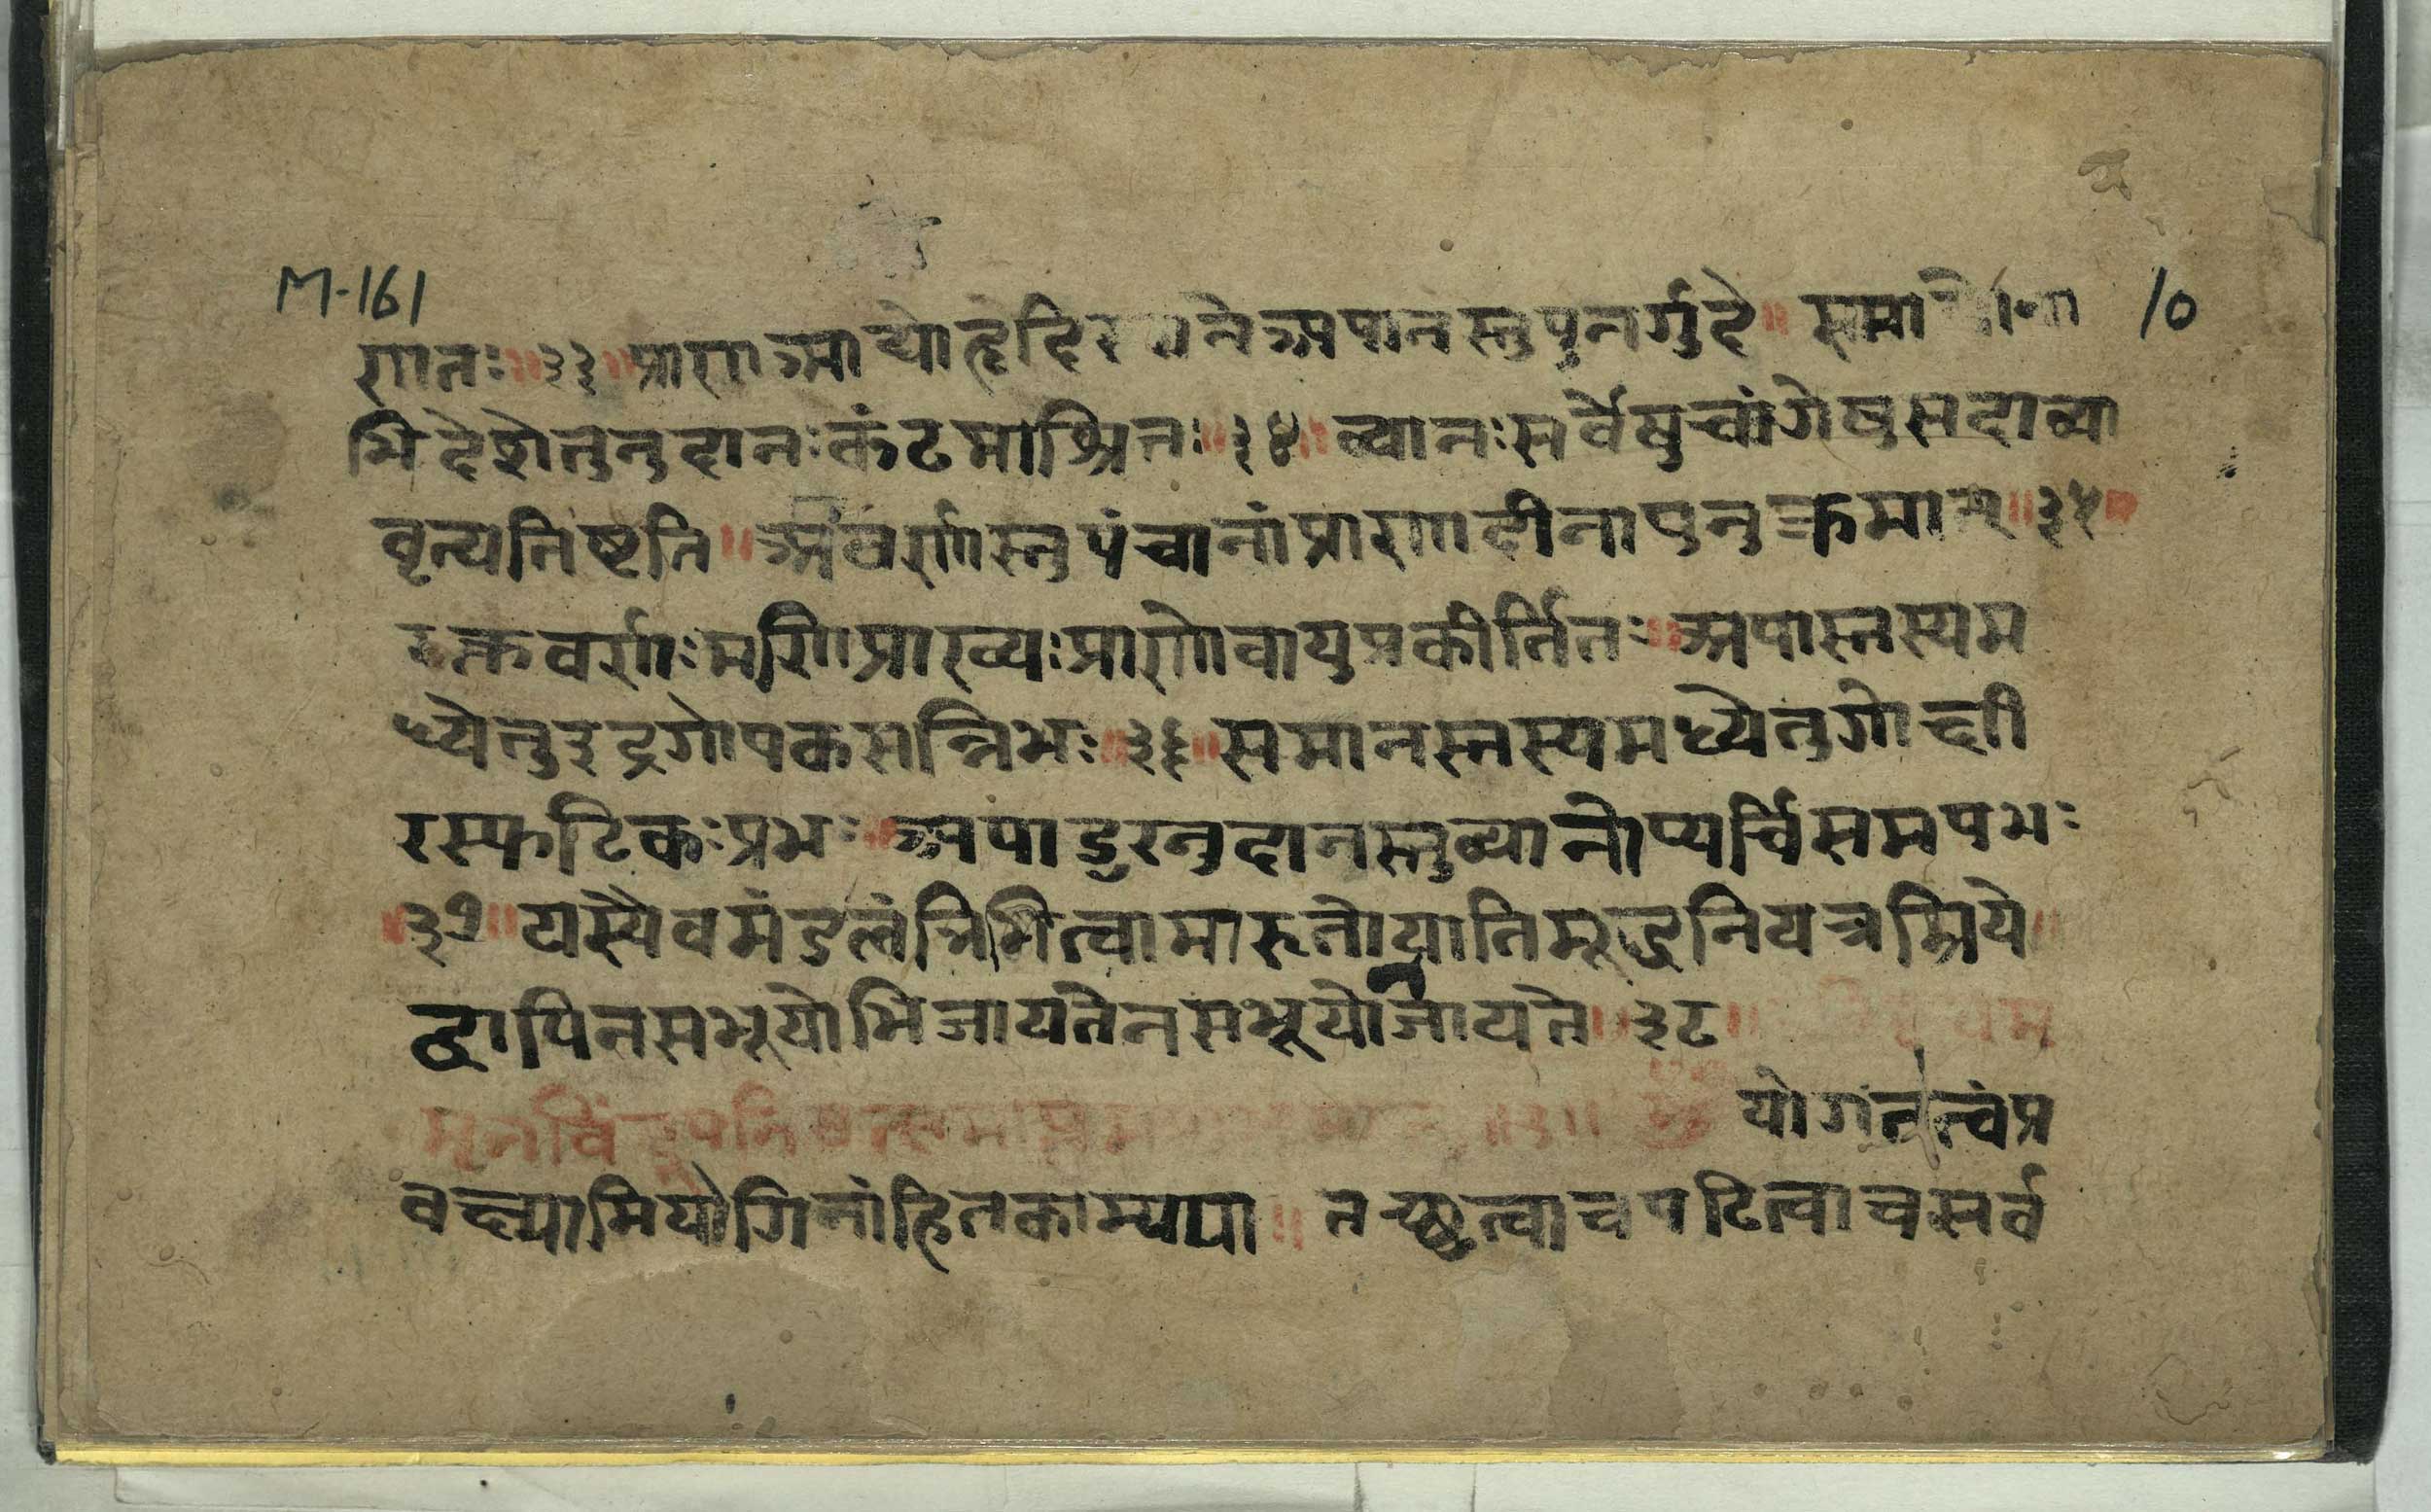 M-161
10
णातः ॥ ३३ ॥ प्राणआद्योहृदि नेअपानस्तुपुनर्गुदे ॥ समा
भिदेशेतुनुदानःकंठमाश्रितः ॥ ३४ ॥ व्यानःसर्वेषुचांगेषुसदाव्या
वृत्यतिष्टति ॥ अंवर्णास्तुपंचानांप्राणादीनापुनुक्रमात् ॥ ३५ ॥
रक्तवर्णःमणिप्राख्यःप्राणोवायुप्रकीर्तितः ॥ अपास्तस्यम
ध्येतुइद्रगोपकसन्निभः ॥ ३६ ॥ समानस्तस्यमध्येतुगोक्षी
रस्फटिकःप्रभः ॥ अपाडुरनुदानस्तुव्यानोप्यर्चिसमपभः
॥ ३७ ॥ यस्यैवमंडलंन्निभित्वामारुतोयातिमूर्द्धनियत्रम्रिये ॥
द्वापिनसभूयोभिजायतेनसभूयोजायते ॥ ३८ ॥
योगतत्त्वंप्र
वक्ष्यामियोगिनांहितकाम्यया ॥ तच्छ्रुत्वाचपठित्वाचसर्व